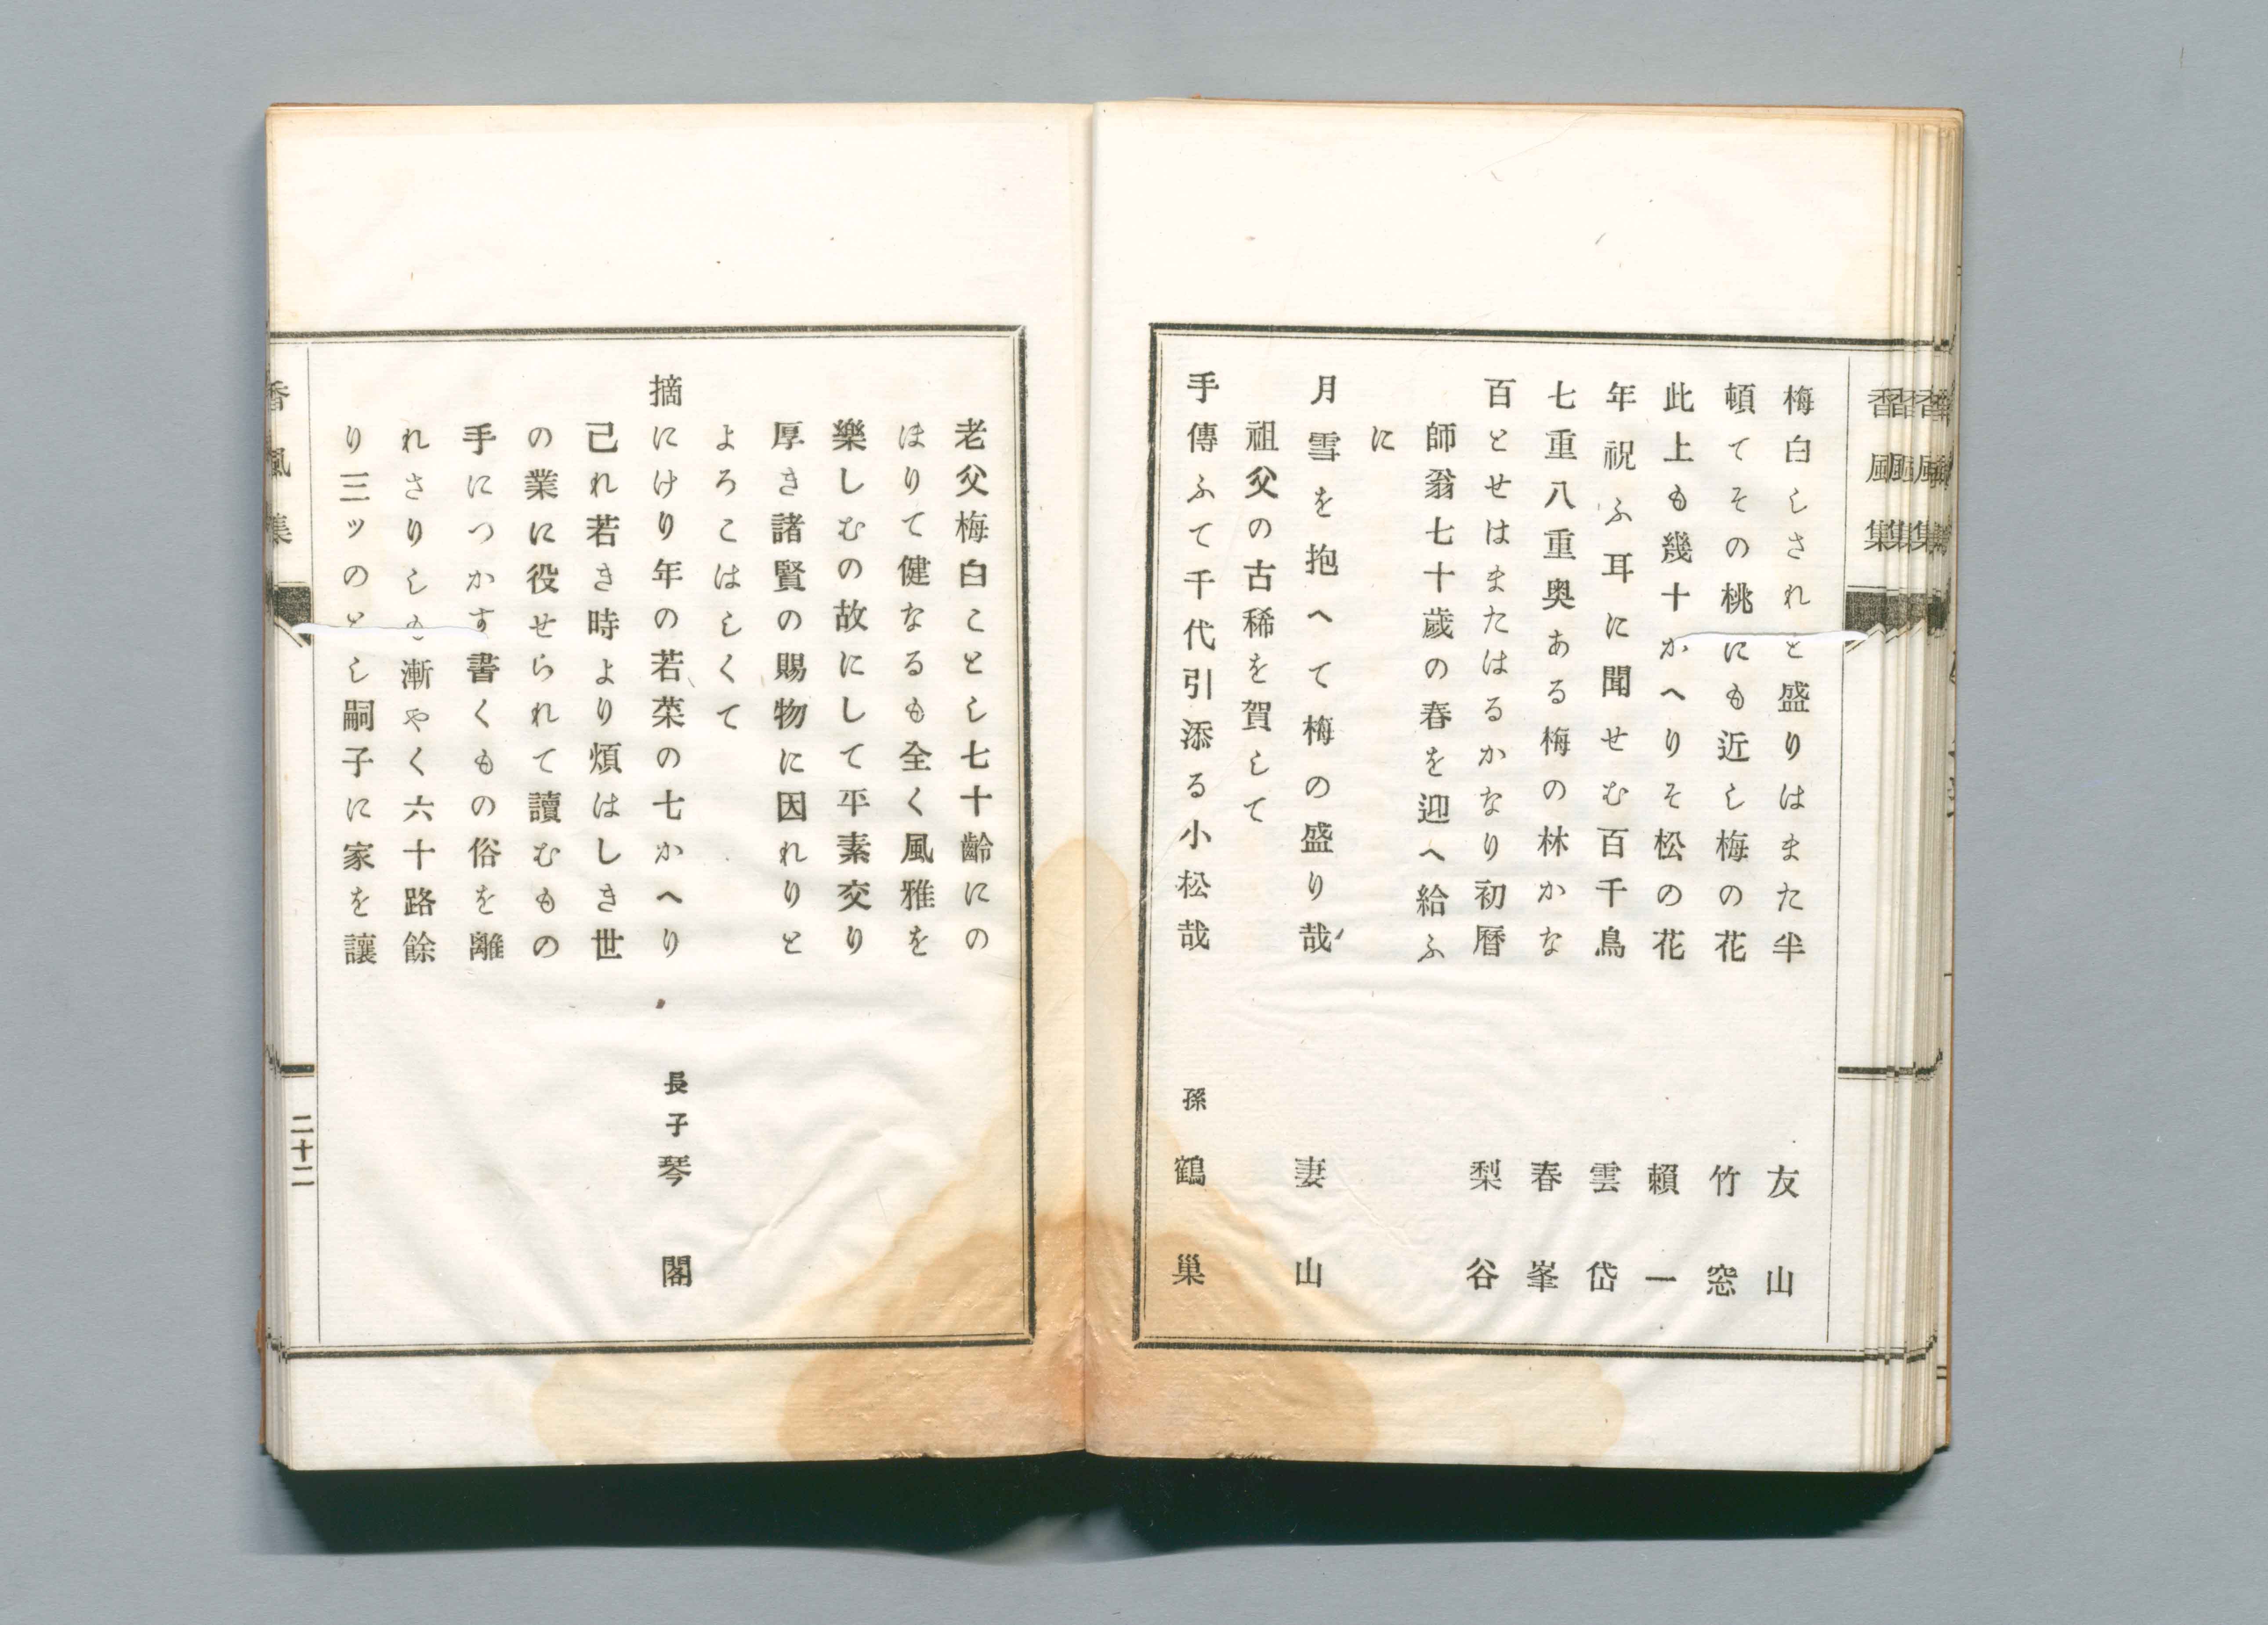 香風集
梅白しされと盛りはまた半　友山
頓てその桃にも近し梅の花　竹窓
此上も幾十かへりそ松の花　頼一
年祝ふ耳に聞せむ百千鳥　雲岱
七重八重奥ある梅の林かな　春峯
百とせはまたはるかなり初暦　梨谷
師翁七十歳の春を迎へ給ふ
に
月雪を抱へて梅の盛り哉　妻山
祖父の古稀を賀して
手傳ふて千代引添る小松哉　孫　鶴巣
老父梅白ことし七十齡にの
ほりて健なるも全く風雅を
樂しむの故にして平素交り
厚き諸賢の賜物に因れりと
よろこはしくて
摘にけり年の若菜の七かへり　長子　琴閣
己れ若き時より煩はしき世
の業に役せられて讀むもの
手につかす書くもの俗を離
れさりしも漸やく六十路餘
り三ッのとし嗣子に家を讓
香風集
二十二